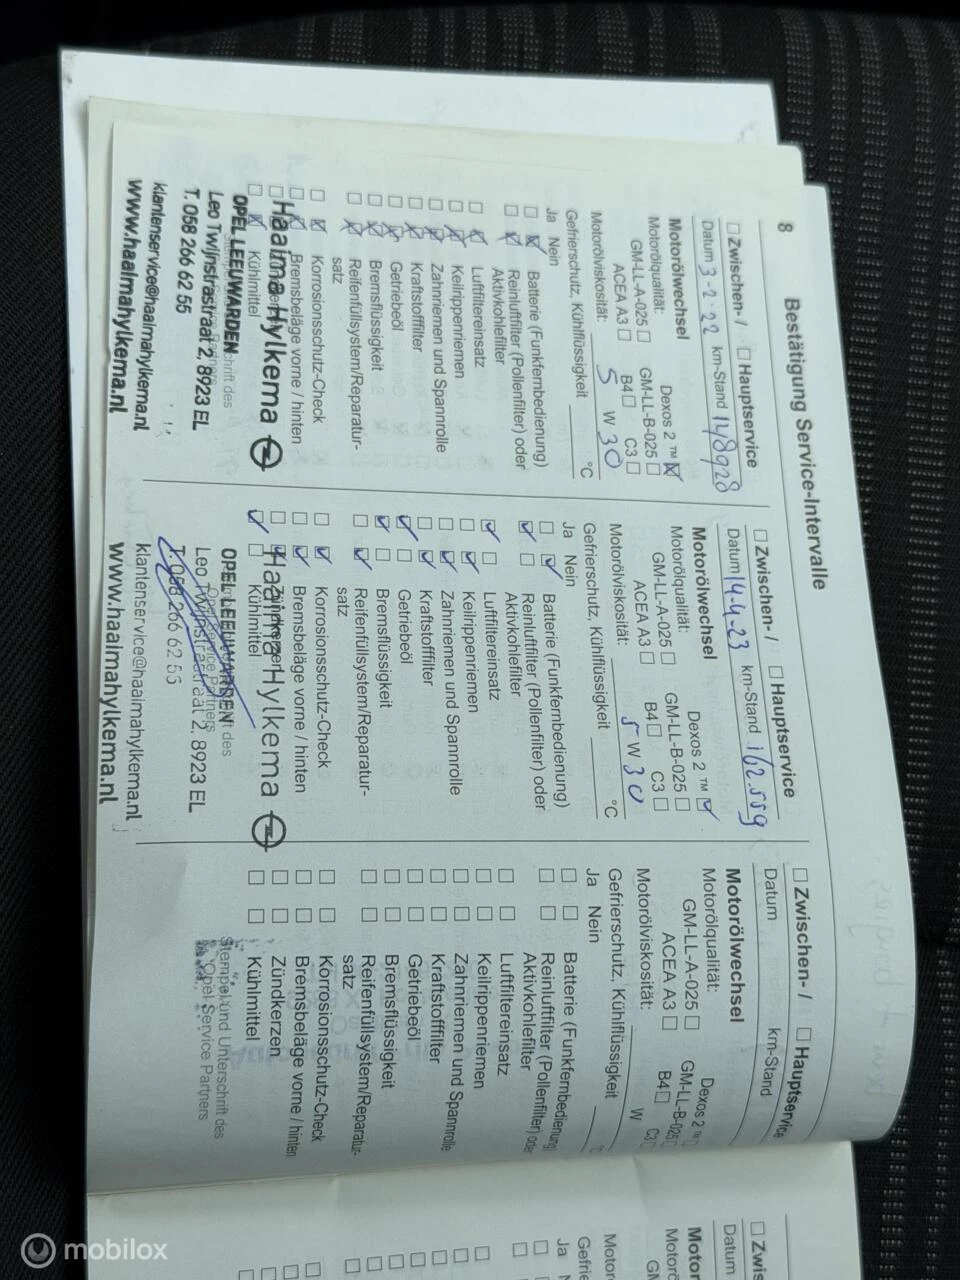 8
Bestätigung Service-Intervalle
Zwischen- / Hauptservice
Datum 3-2-22 km-Stand 148928
Motorölwechsel
Motorölqualität: Dexos 2 ™
GM-LL-A-025 GM-LL-B-025
ACEA A3 B4 C3
Motorölviskosität: 5 W 30
Gefrierschutz, Kühlflüssigkeit °C
Ja Nein
Batterie (Funkfernbedienung)
Reinluftfilter (Pollenfilter) oder
Aktivkohlefilter
Luftfiltereinsatz
Keilrippenriemen
Zahnriemen und Spannrolle
Kraftstofffilter
Getriebeöl
Bremsflüssigkeit
Reifenfüllsystem/Reparatur-
satz
Korrosionsschutz-Check
Bremsbeläge vorne / hinten
Haaima Hylkema
Kühlmittel
OPEL LEEUWARDEN
Leo Twijnstrastraat 2, 8923 EL
T. 058 266 62 55
klantenservice@haaimahylkema.nl
www.haaimahylkema.nl
Zwischen- / Hauptservice
Datum 14-4-23 km-Stand 162.559
Motorölwechsel
Motorölqualität: Dexos 2 ™
GM-LL-A-025 GM-LL-B-025
ACEA A3 B4 C3
Motorölviskosität: 5 W 30
Gefrierschutz, Kühlflüssigkeit °C
Ja Nein
Batterie (Funkfernbedienung)
Reinluftfilter (Pollenfilter) oder
Aktivkohlefilter
Luftfiltereinsatz
Keilrippenriemen
Zahnriemen und Spannrolle
Kraftstofffilter
Getriebeöl
Bremsflüssigkeit
Reifenfüllsystem/Reparatur-
satz
Korrosionsschutz-Check
Bremsbeläge vorne / hinten
Haaima Hylkema
Kühlmittel
OPEL LEEUWARDEN
Leo Twijnstrastraat 2, 8923 EL
T. 058 266 62 55
klantenservice@haaimahylkema.nl
www.haaimahylkema.nl
Zwischen- / Hauptservice
Datum km-Stand
Motorölwechsel
Motorölqualität: Dexos 2 ™
GM-LL-A-025 GM-LL-B-025
ACEA A3 B4 C3
Motorölviskosität: W
Gefrierschutz, Kühlflüssigkeit
Ja Nein
Batterie (Funkfernbedienung)
Reinluftfilter (Pollenfilter) oder
Aktivkohlefilter
Luftfiltereinsatz
Keilrippenriemen
Zahnriemen und Spannrolle
Kraftstofffilter
Getriebeöl
Bremsflüssigkeit
Reifenfüllsystem/Reparatur-
satz
Korrosionsschutz-Check
Bremsbeläge vorne / hinten
Zündkerzen
Kühlmittel
Stempel und Unterschrift des
Opel Service Partners
Zwis
Datum
Motor
Motorö
GM
Motor
Gefrie
Ja
mobilox